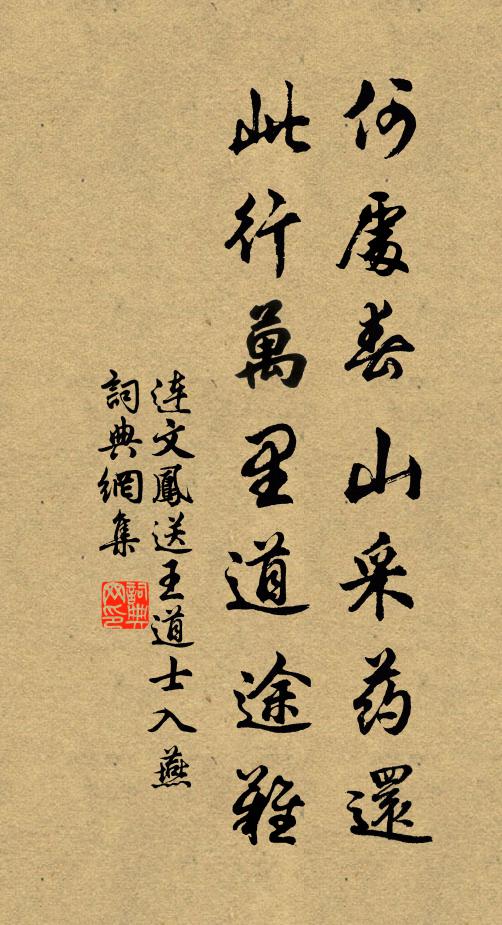 何處春山采药還
此行萬里道途難
连文鳳送王道士入燕
詞典網集
詞典网印